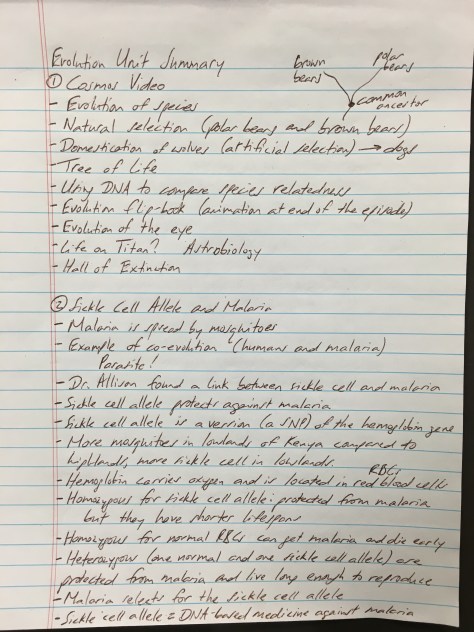 Evolution Unit Summary
brown bears
polar bears
common ancestor
① Cosmos Video
- Evolution of species
- Natural selection (polar bears and brown bears)
- Domestication of wolves (artificial selection) → dogs
- Tree of Life
- Using DNA to compare species relatedness
- Evolution flip-book (animation at end of the episode)
- Evolution of the eye
- Life on Titan? Astrobiology
- Hall of Extinction
② Sickle Cell Allele and Malaria
- Malaria is spread by mosquitoes
- Example of co-evolution (humans and malaria)
Parasite!
- Dr. Allison found a link between sickle cell and malaria
- Sickle cell allele protects against malaria
- Sickle cell allele is a version (a SNP) of the hemoglobin gene
- More mosquitoes in lowlands of Kenya compared to
highlands, more sickle cell in lowlands.
RBCs
- Hemoglobin carries oxygen and is located in red blood cells
- Homozygous for sickle cell allele: protected from malaria
but they have shorter lifespans
- Homozygous for normal RBCs can get malaria and die early
- Heterozygous (one normal and one sickle cell allele) are
protected from malaria and live long enough to reproduce
- Malaria selects for the sickle cell allele
- Sickle cell allele = DNA-based medicine against malaria